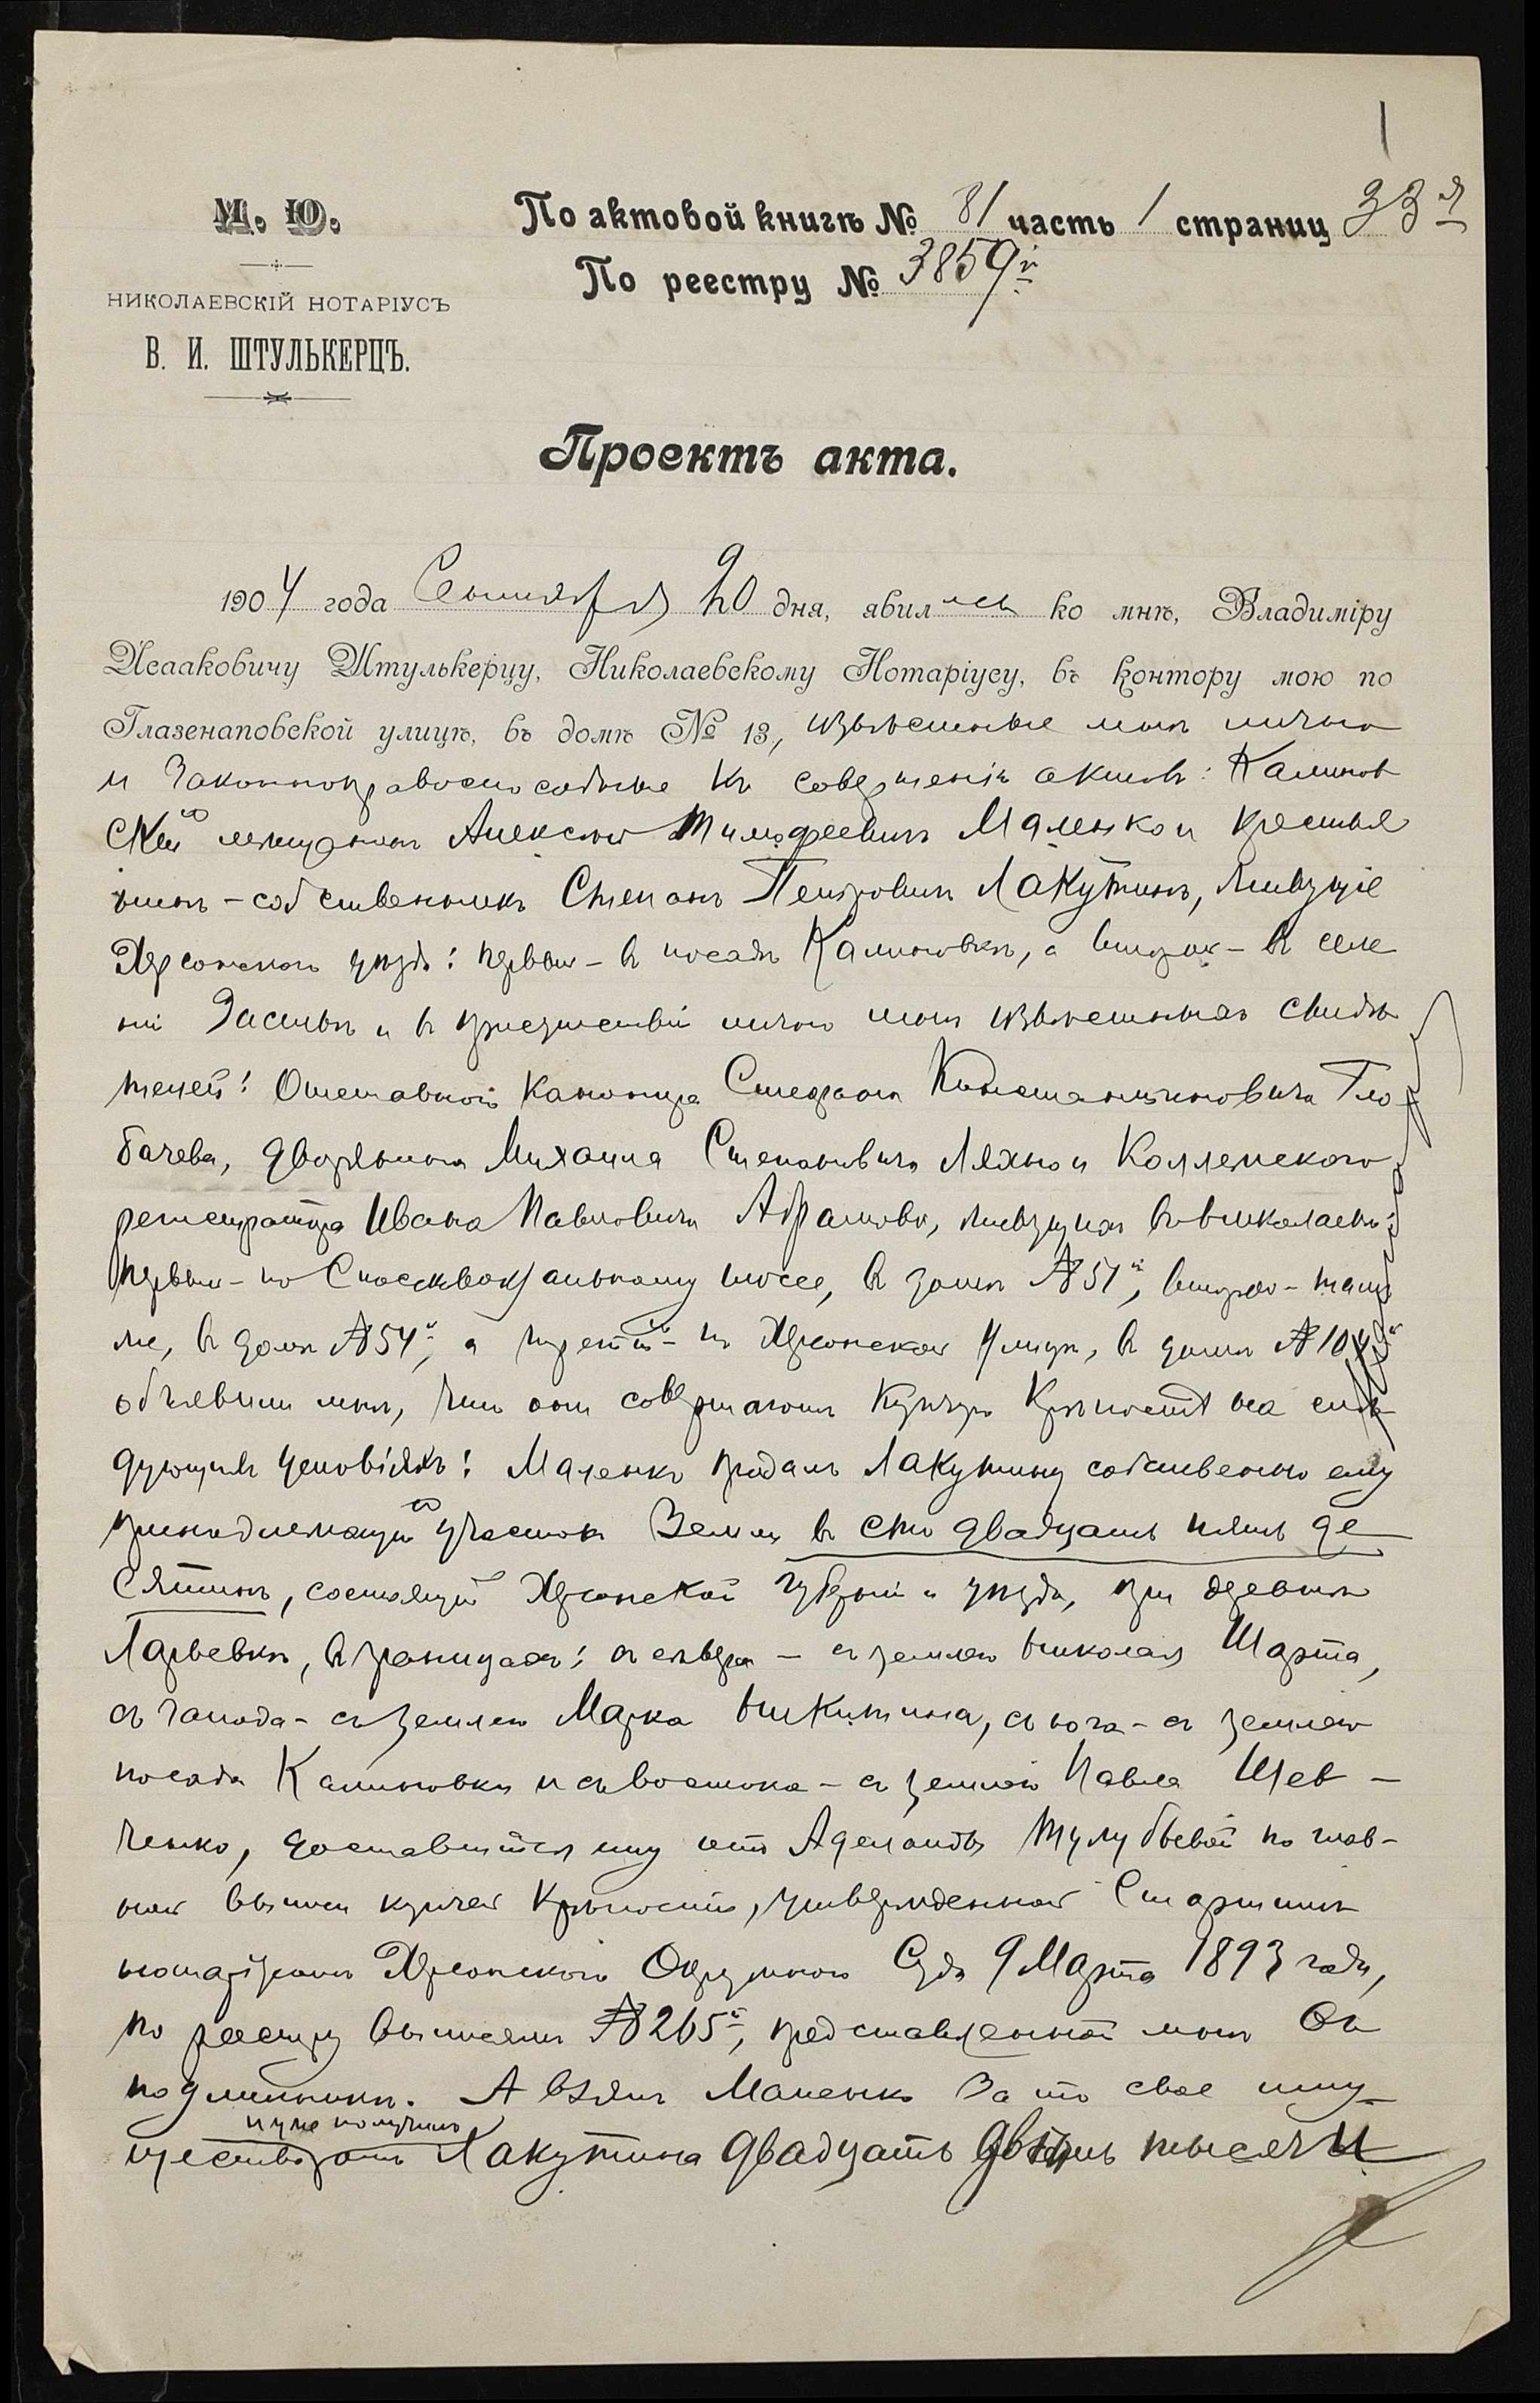 1
М. Ю.
НИКОЛАЕВСКІЙ НОТАРІУСЪ
В. И. ШТУЛЬКЕРЦЪ.
По актовой книгѣ № 81 часть 1 страниц 33 я
По реестру № 3859 й
Проектъ акта.
1904 года Сентября 20 дня, явились ко мнѣ, Владиміру
Исааковичу Штулькерцу, Николаевскому Нотаріусу, въ контору мою по
Глазенаповской улицѣ, въ домѣ № 13, извѣстные мнѣ лично
и законноправоспособные къ совершенію актовъ: Калинов
скій мещанинъ Алексѣй Тимофеевичъ Маленко и крестья
нинъ-собственникъ Степанъ Петровичъ Лакутинъ, живущіе
Херсонскаго уѣзда: первый - въ посадѣ Калиновкѣ, а второй - въ селе
ніи Засельѣ и въ присутствіи лично мнѣ извѣстныхъ свидѣ
телей: Отставного канонира Стефана Константиновича Гло
бачева, дворянина Михаила Степановича Ляхно и Коллежского
регистратора Ивана Павловича Абрамова, живущихъ въ Николаевѣ:
первый - по Спасскому шоссе, въ домѣ № 51й, второй - тамъ
же, въ домѣ № 54й, а третій - по Херсонской улицѣ, въ домѣ № 104й
объявили мнѣ, что они совершаютъ купчую крѣпость на слѣ
дующихъ условіяхъ: Маленко продалъ Лакутину собственно ему
принадлежащій участокъ земли въ сто двадцать пять де
сятинъ, состоящій Херсонской губерніи и уѣзда, при деревнѣ
Ларьевкѣ, въ границахъ: съ сѣвера - съ землею Николая Шарта,
съ запада - съ землею Марка Никитина, съ юга - съ землею
посада Калиновки и съ востока - съ землею Павла Шев -
ченко, доставшійся ему отъ Аделаиды Тулубьевой по глав-
ной выписи купчей крѣпости, утвержденной Старшимъ
нотаріусомъ Херсонского Окружного Суда 9 Марта 1893 года,
по реестру выписямъ № 265й, представленной мнѣ въ
подлинникѣ. А взялъ Маленко за то свое иму-
и уже получилъ
щество отъ Лакутина двадцать двѣ тысячи